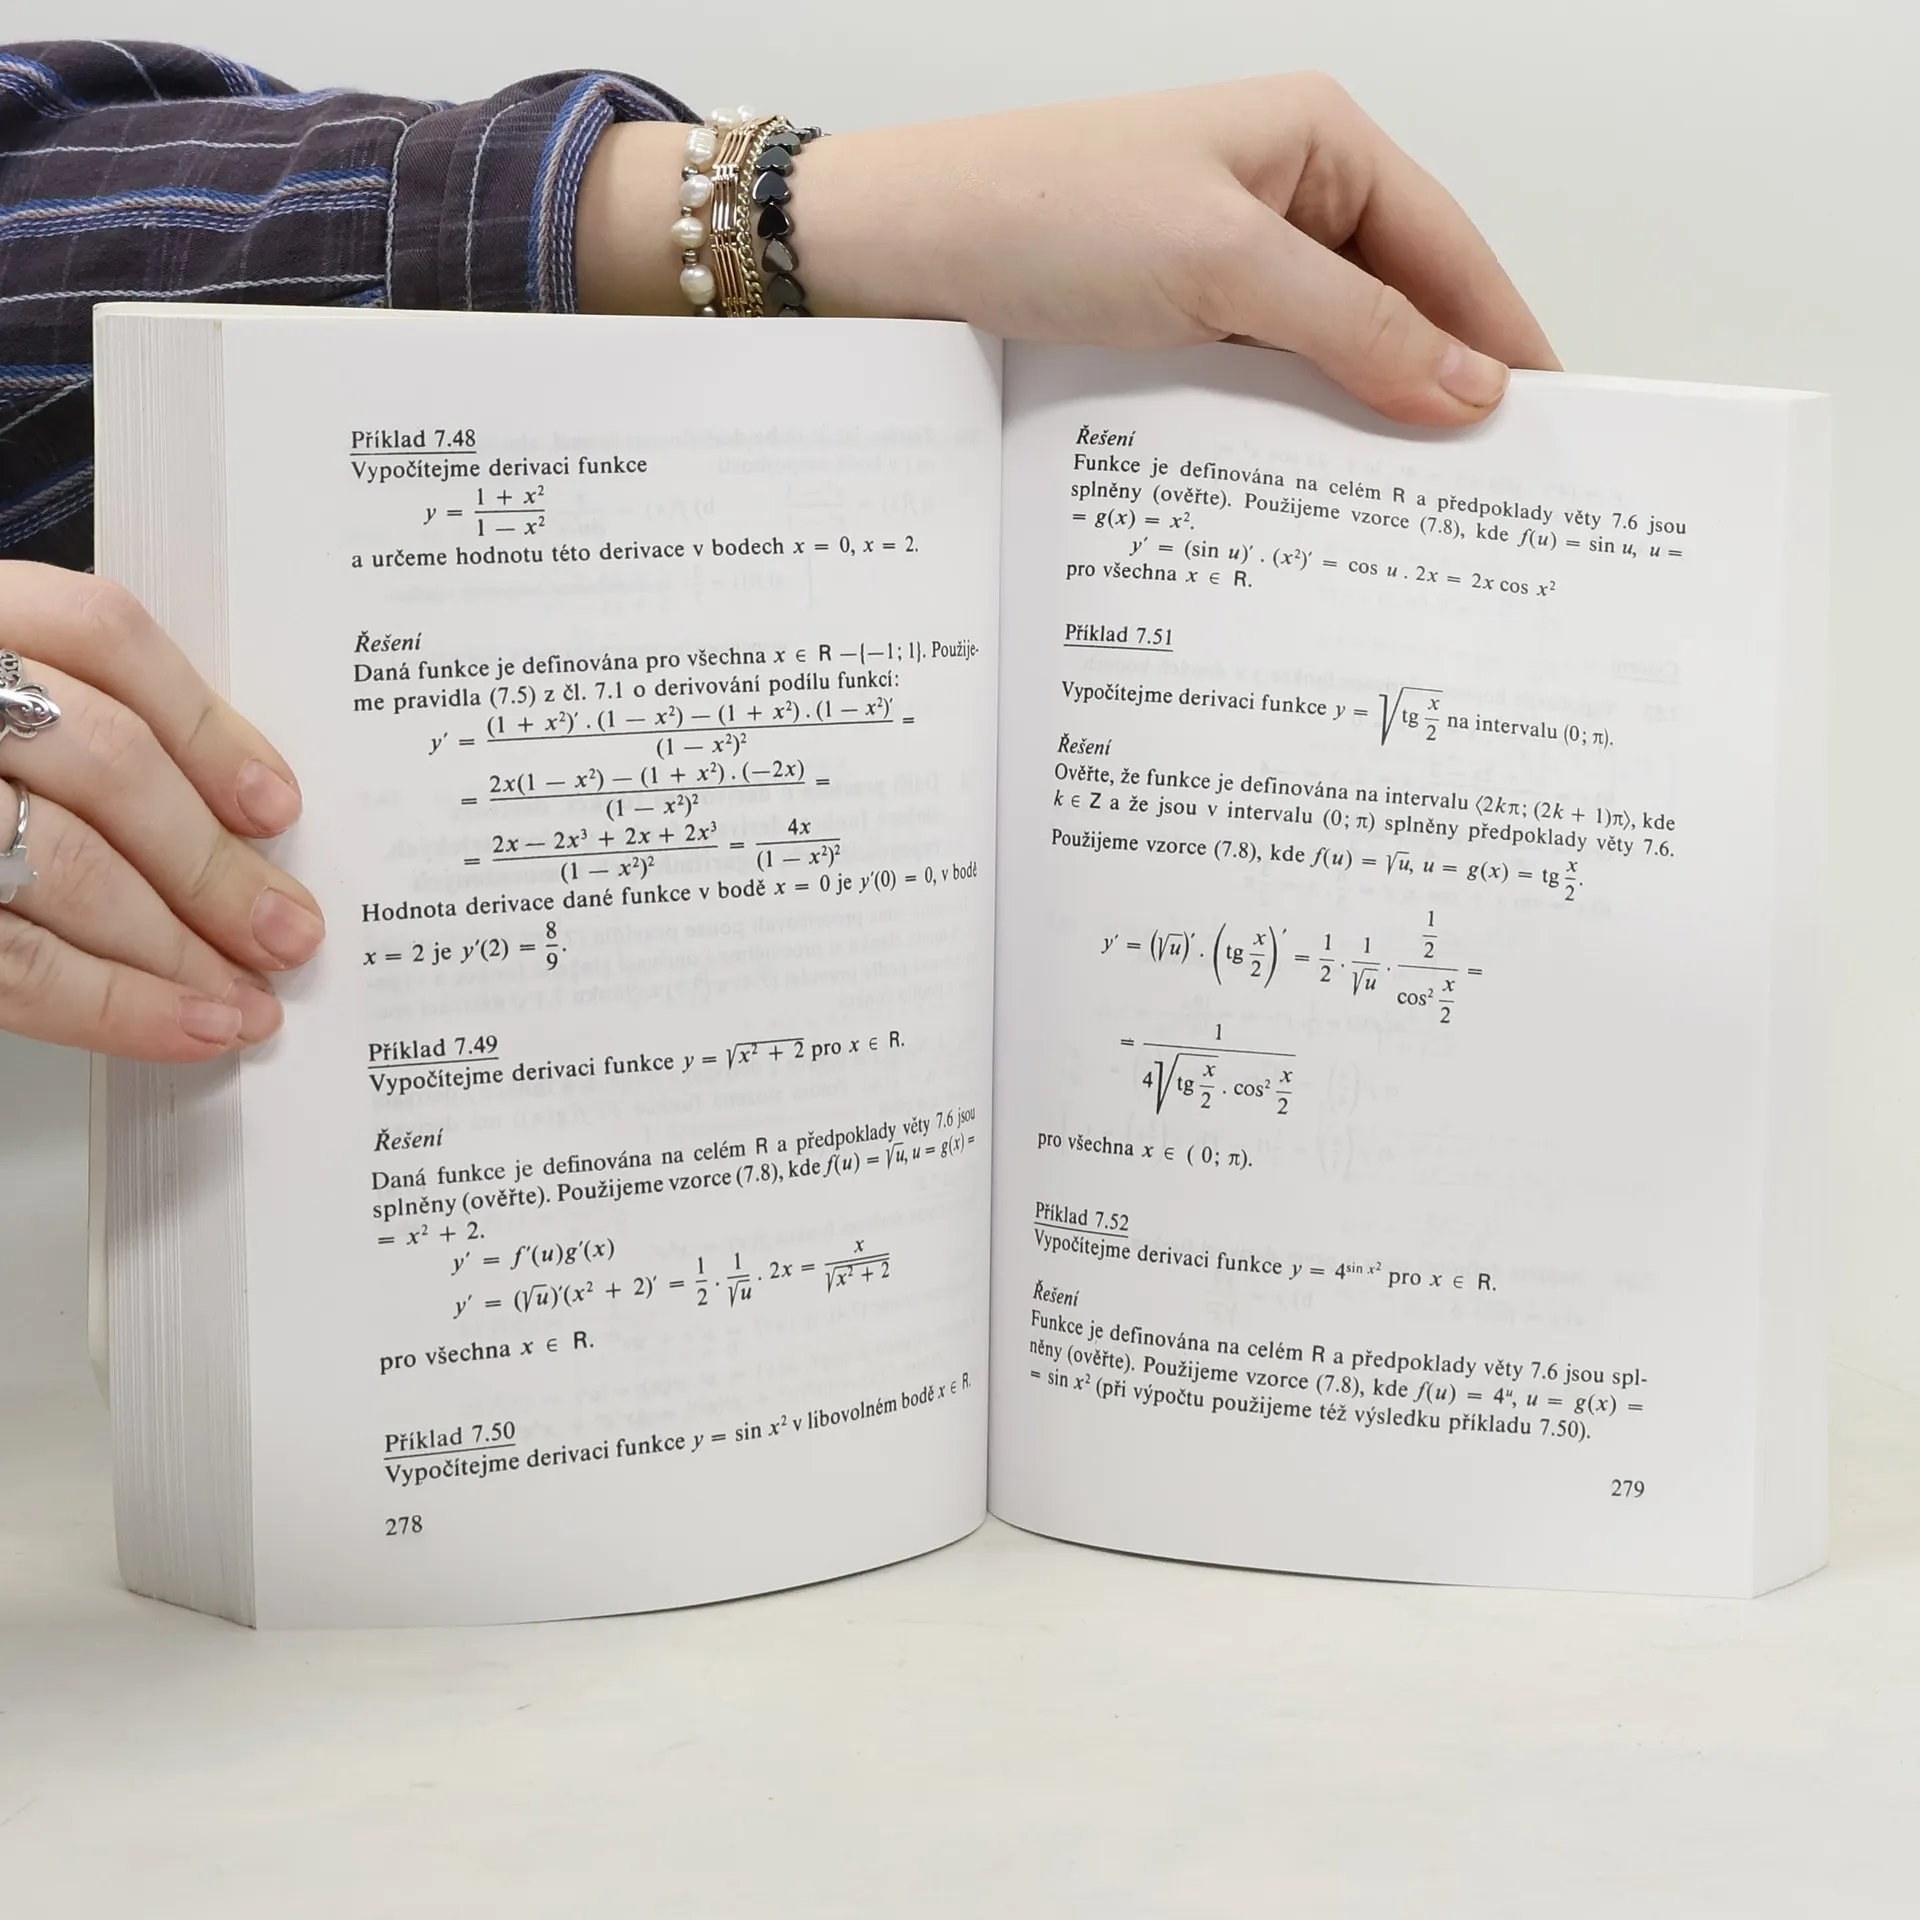 Příklad 7.48
Vypočítejme derivaci funkce
y = \frac{1 + x²}{1 — x²}
a určeme hodnotu této derivace v bodech x = 0, x = 2.
Řešení
Daná funkce je definována pro všechna x ∈ R —{—1; 1}. Použije-
me pravidla (7.5) z čl. 7.1 o derivování podílu funkcí:
y′ = \frac{(1 + x²)′ . (1 — x²) — (1 + x²) . (1 — x²)′}{(1 — x²)²} =
= \frac{2x(1 — x²) — (1 + x²) . (—2x)}{(1 — x²)²} =
= \frac{2x — 2x³ + 2x + 2x³}{(1 — x²)²} = \frac{4x}{(1 — x²)²}
Hodnota derivace dané funkce v bodě x = 0 je y′(0) = 0, v bodě
x = 2 je y′(2) = \frac{8}{9}.
Příklad 7.49
Vypočítejme derivaci funkce y = √(x² + 2) pro x ∈ R.
Řešení
Daná funkce je definována na celém R a předpoklady věty 7.6 jsou
splněny (ověřte). Použijeme vzorce (7.8), kde f(u) = √u, u = g(x) =
= x² + 2.
y′ = f′(u)g′(x)
y′ = (√u)′(x² + 2)′ = \frac{1}{2} . \frac{1}{√u} . 2x = \frac{x}{√(x² + 2)}
pro všechna x ∈ R.
Příklad 7.50
Vypočítejme derivaci funkce y = sin x² v libovolném bodě x ∈ R.
278
Řešení
Funkce je definována na celém R a předpoklady věty 7.6 jsou
splněny (ověřte). Použijeme vzorce (7.8), kde f(u) = sin u, u =
= g(x) = x².
y′ = (sin u)′ . (x²)′ = cos u . 2x = 2x cos x²
pro všechna x ∈ R.
Příklad 7.51
Vypočítejme derivaci funkce y = √(tg \frac{x}{2}) na intervalu (0; π).
Řešení
Ověřte, že funkce je definována na intervalu ⟨2kπ; (2k + 1)π), kde
k ∈ Z a že jsou v intervalu (0; π) splněny předpoklady věty 7.6.
Použijeme vzorce (7.8), kde f(u) = √u, u = g(x) = tg \frac{x}{2}.
y′ = (√u)′ . (tg \frac{x}{2})′ = \frac{1}{2} . \frac{1}{√u} . \frac{\frac{1}{2}}{cos² \frac{x}{2}} =
= \frac{1}{4√(tg \frac{x}{2}) . cos² \frac{x}{2}}
pro všechna x ∈ ( 0; π).
Příklad 7.52
Vypočítejme derivaci funkce y = 4^{sin x²} pro x ∈ R.
Řešení
Funkce je definována na celém R a předpoklady věty 7.6 jsou spl-
něny (ověřte). Použijeme vzorce (7.8), kde f(u) = 4ᵘ, u = g(x) =
= sin x² (při výpočtu použijeme též výsledku příkladu 7.50).
279